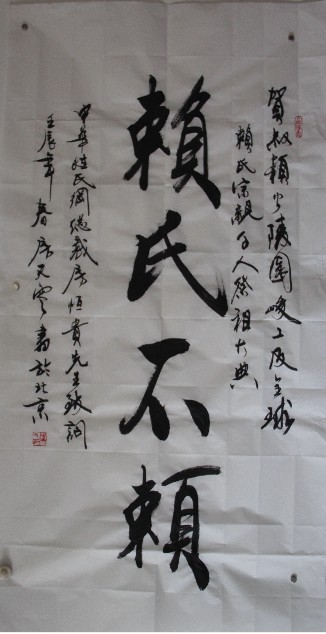 賀叔頼公陵園竣工及全球
賴氏宗親千人祭祖大典
賴氏不頼
中華姓氏網總裁房恒貴先生敬詞
壬辰年春房又書於北京